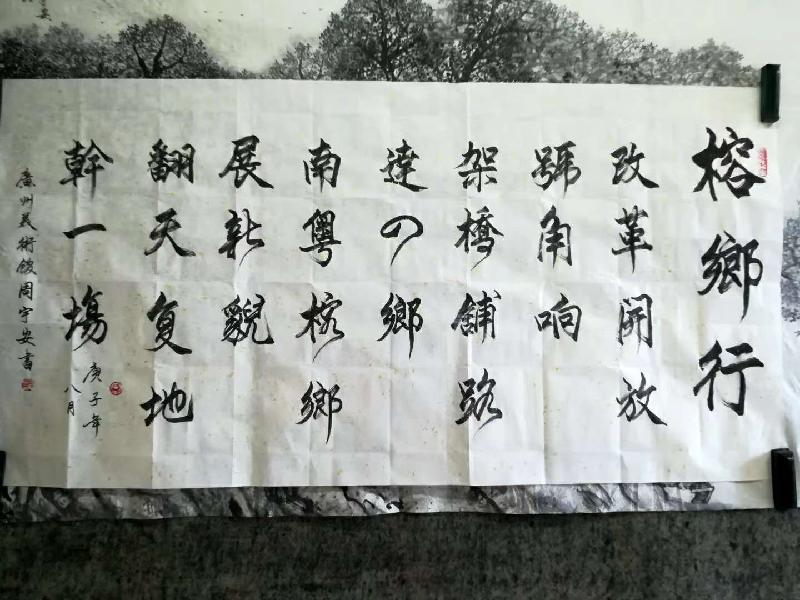 榕鄉行
改革開放
號角响
架橋舖路
達の鄉
南粵榕鄉
展新貌
翻天复地
幹一場
庚子年
八月
廣州美術館周宇安書